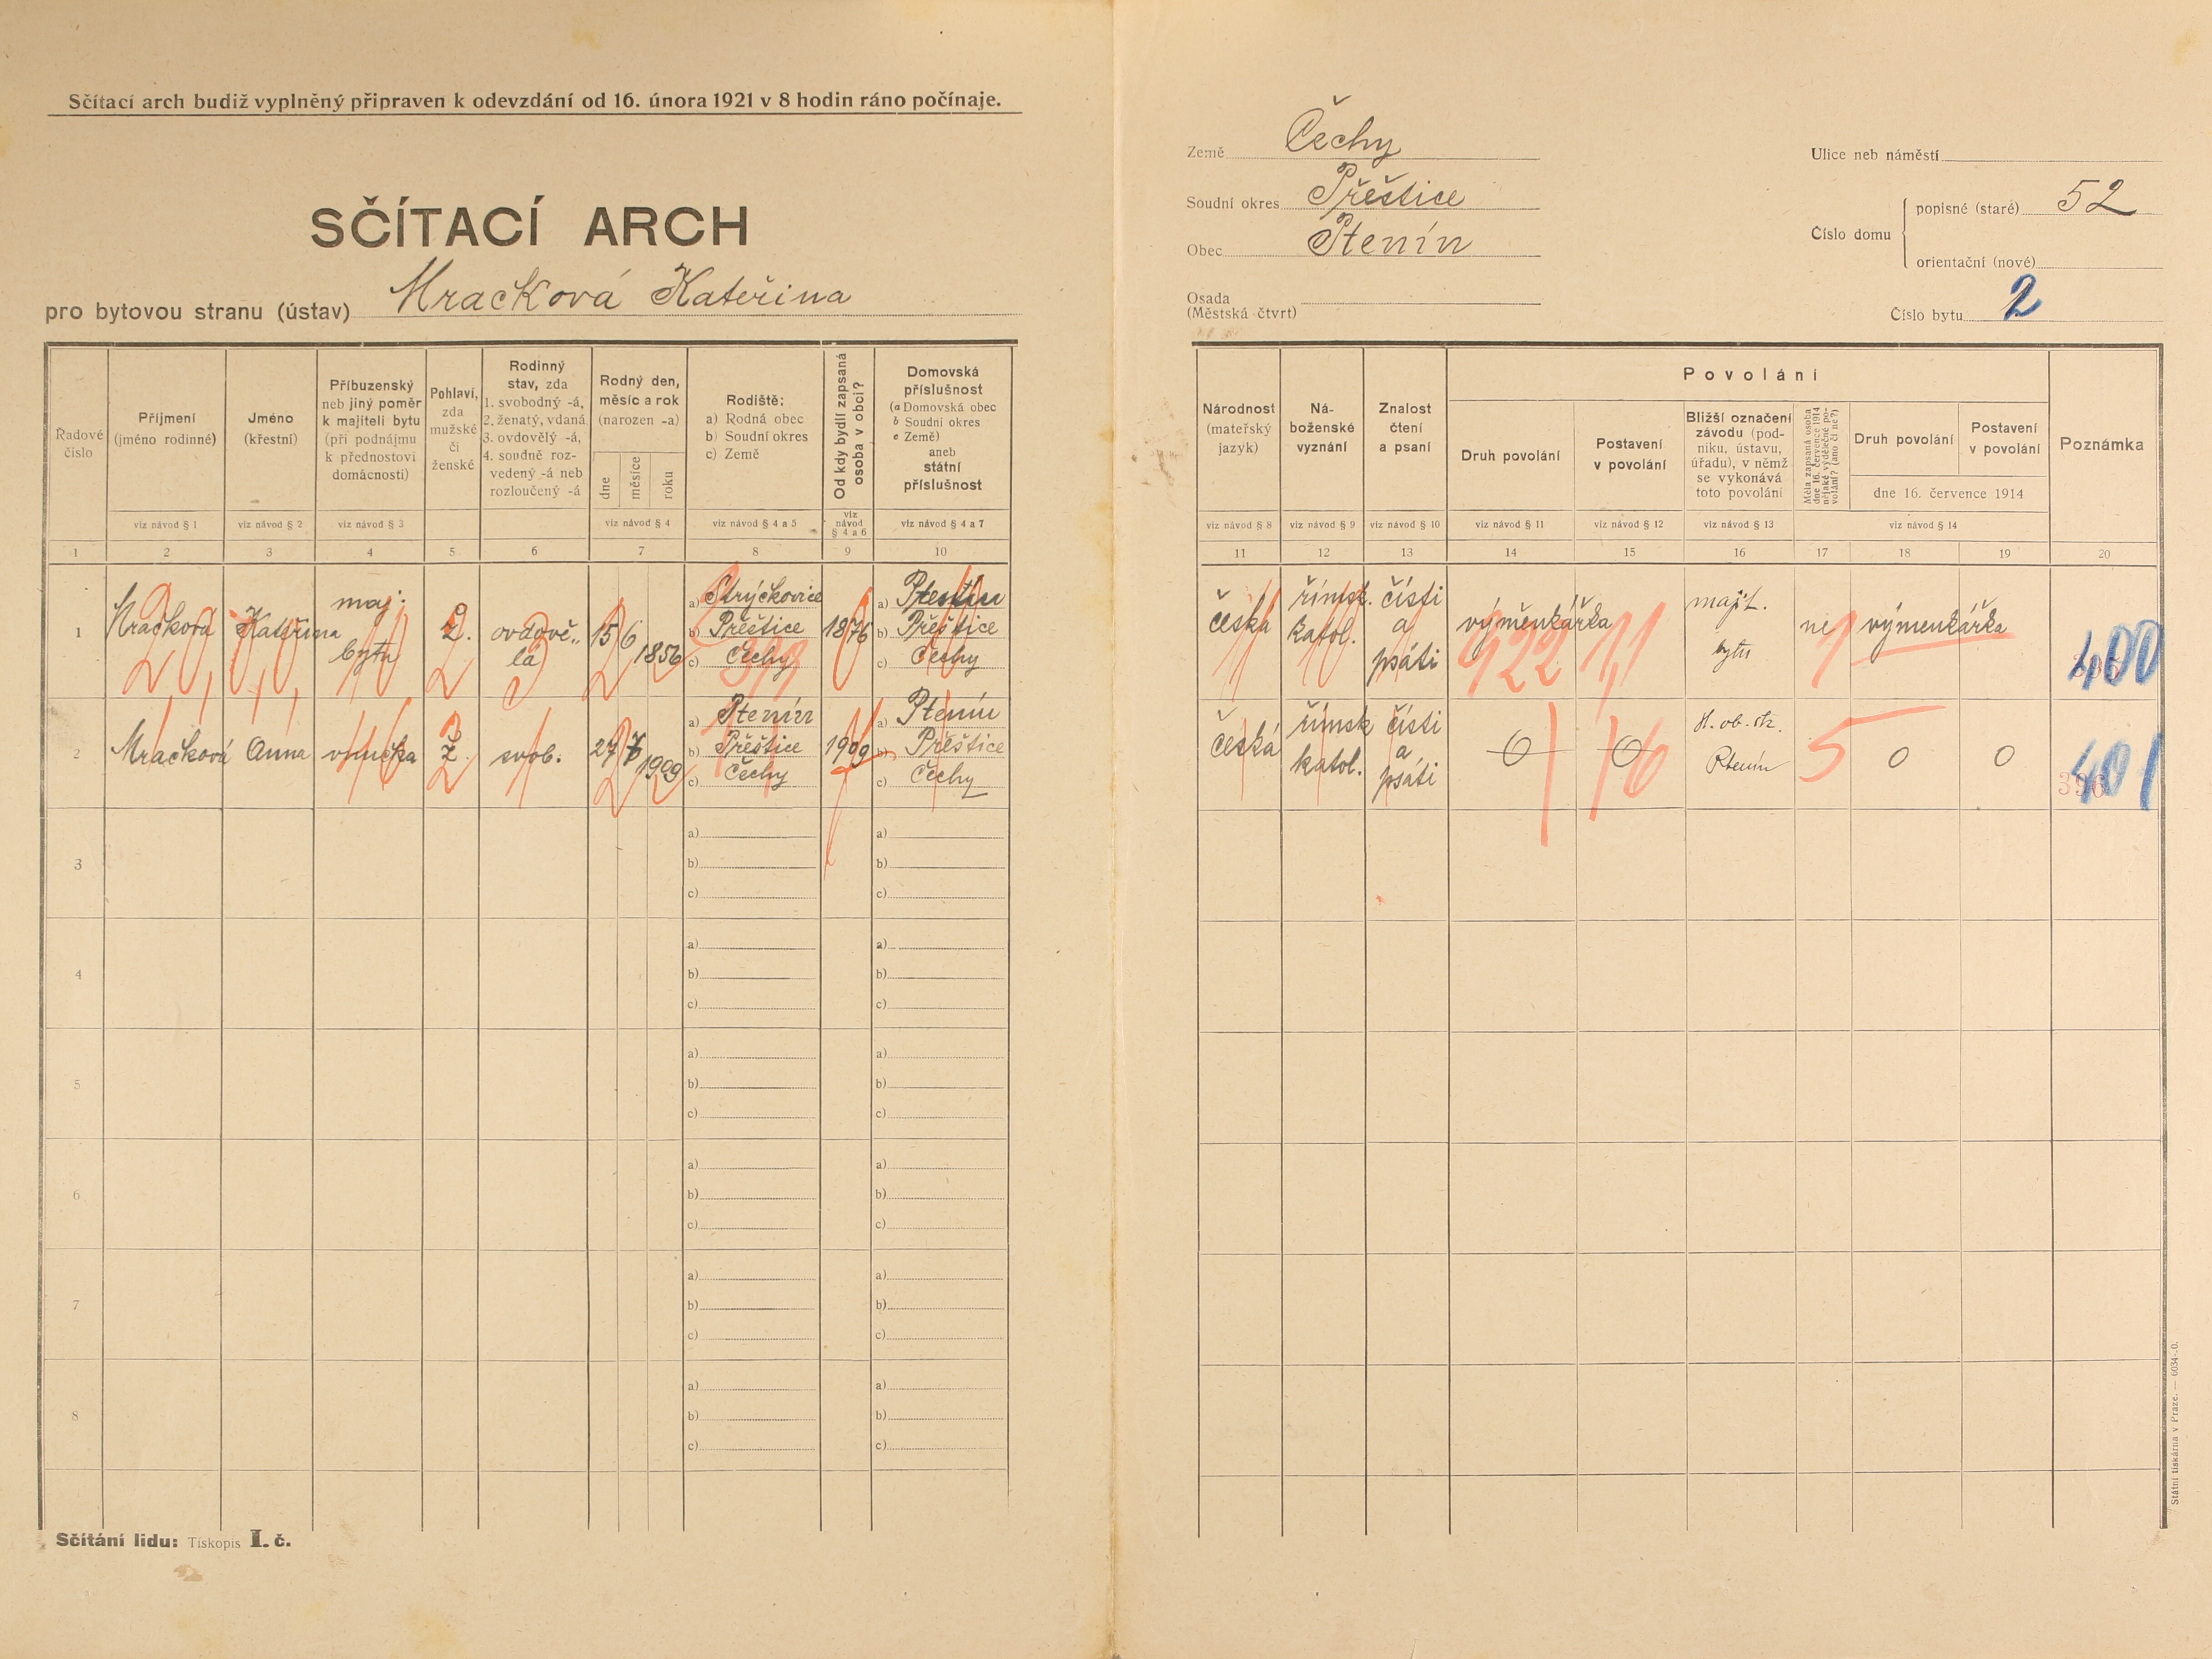 Sčítací arch budiž vyplněný připraven k odevzdání od 16. února 1921 v 8 hodin ráno počínaje.
SČÍTACÍ ARCH
pro bytovou stranu (ústav) Mracková Kateřina
Země Čechy
Soudní okres Přeštice
Obec Ptenín
Osada
(Městská čtvrt)
Ulice neb náměstí
Číslo domu
popisné (staré) 52
orientační (nové)
Číslo bytu 2
Řadové číslo
Příjmení (jméno rodinné)
Jméno (křestní)
Příbuzenský neb jiný poměr k majiteli bytu (při podnájmu k přednostovi domácnosti)
Pohlaví, zda mužské či ženské
Rodinný stav, zda 1. svobodný -á, 2. ženatý, vdaná 3. ovdovělý -á, 4. soudně rozvedený -á neb rozloučený -á
Rodný den, měsíc a rok (narozen -a)
dne měsíce roku
Rodiště:
a) Rodná obec
b) Soudní okres
c) Země
Od kdy bydlí zapsaná osoba v obci?
Domovská příslušnost
(a Domovská obec
b Soudní okres
c Země)
aneb
státní příslušnost
Národnost (mateřský jazyk)
Náboženské vyznání
Znalost čtení a psaní
Povolání
Druh povolání
Postavení v povolání
Bližší označení závodu (podniku, ústavu, úřadu), v němž se vykonává toto povolání
Měla zapsaná osoba dne 16. července 1914 nějaké výdělečné povolání? (ano či ne?)
Druh povolání
Postavení v povolání
dne 16. července 1914
Poznámka
viz návod § 1
viz návod § 2
viz návod § 3
viz návod § 4
viz návod § 4 a 5
viz návod § 4 a 6
viz návod § 4 a 7
viz návod § 8
viz návod § 9
viz návod § 10
viz návod § 11
viz návod § 12
viz návod § 13
viz návod § 14
1 2 3 4 5 6 7 8 9 10 11 12 13 14 15 16 17 18 19 20
1 Mracková Kateřina maj. bytu ž. ovdovělá 15 6 1856
a) Strýčkovice
b) Přeštice
c) Čechy
1876
a) Ptenín
b) Přeštice
c) Čechy
česká římsk. katol. čísti a psáti výměnkářka majit. bytu ne výmenkářka 400
922 1
2 Mračková Anna vnučka ž. svob. 27 7 1909
a) Ptenín
b) Přeštice
c) Čechy
1909
a) Ptenín
b) Přeštice
c) Čechy
česká římsk katol. čísti a psáti 0 0 ob. šk. Ptenín 5 0 0 401
396
3
a)
b)
c)
a)
b)
c)
4
a)
b)
c)
a)
b)
c)
5
a)
b)
c)
a)
b)
c)
6
a)
b)
c)
a)
b)
c)
7
a)
b)
c)
a)
b)
c)
8
a)
b)
c)
a)
b)
c)
Sčítání lidu: Tiskopis I. č.
Státní tiskárna v Praze. — 6034-0.